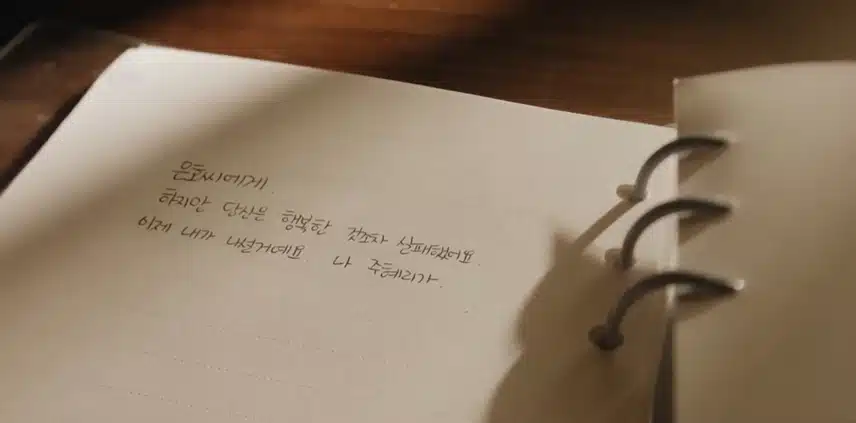 은호씨에게.
하지만 당신은 행복한 것조차 실패했어요.
이제 내가 나설거예요 나 주혜리가.